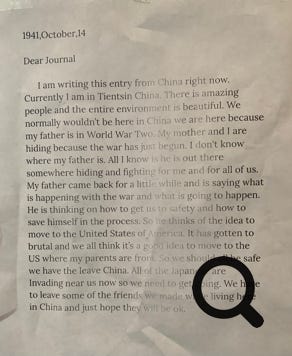 1941,October,14
Dear Journal
I am writing this entry from China right now.
Currently I am in Tientsin China. There is amazing
people and the entire environment is beautiful. We
normally wouldn't be here in China we are here because
my father is in World War Two. My mother and I are
hiding because the war has just begun. I don't know
where my father is. All I know is he is out there
somewhere hiding and fighting for me and for all of us.
My father came back for a little while and is saying what
is happening with the war and what is going to happen.
He is thinking on how to get us to safety and how to
save himself in the process. So he thinks of the idea to
move to the United States of America. It has gotten to
brutal and we all think it's a good idea to move to the
US where my parents are from. So we should be safe
we have the leave China. All of the are
Invading near us now so we need to get going. We
to leave some of the friends we made living
in China and just hope they will be ok.